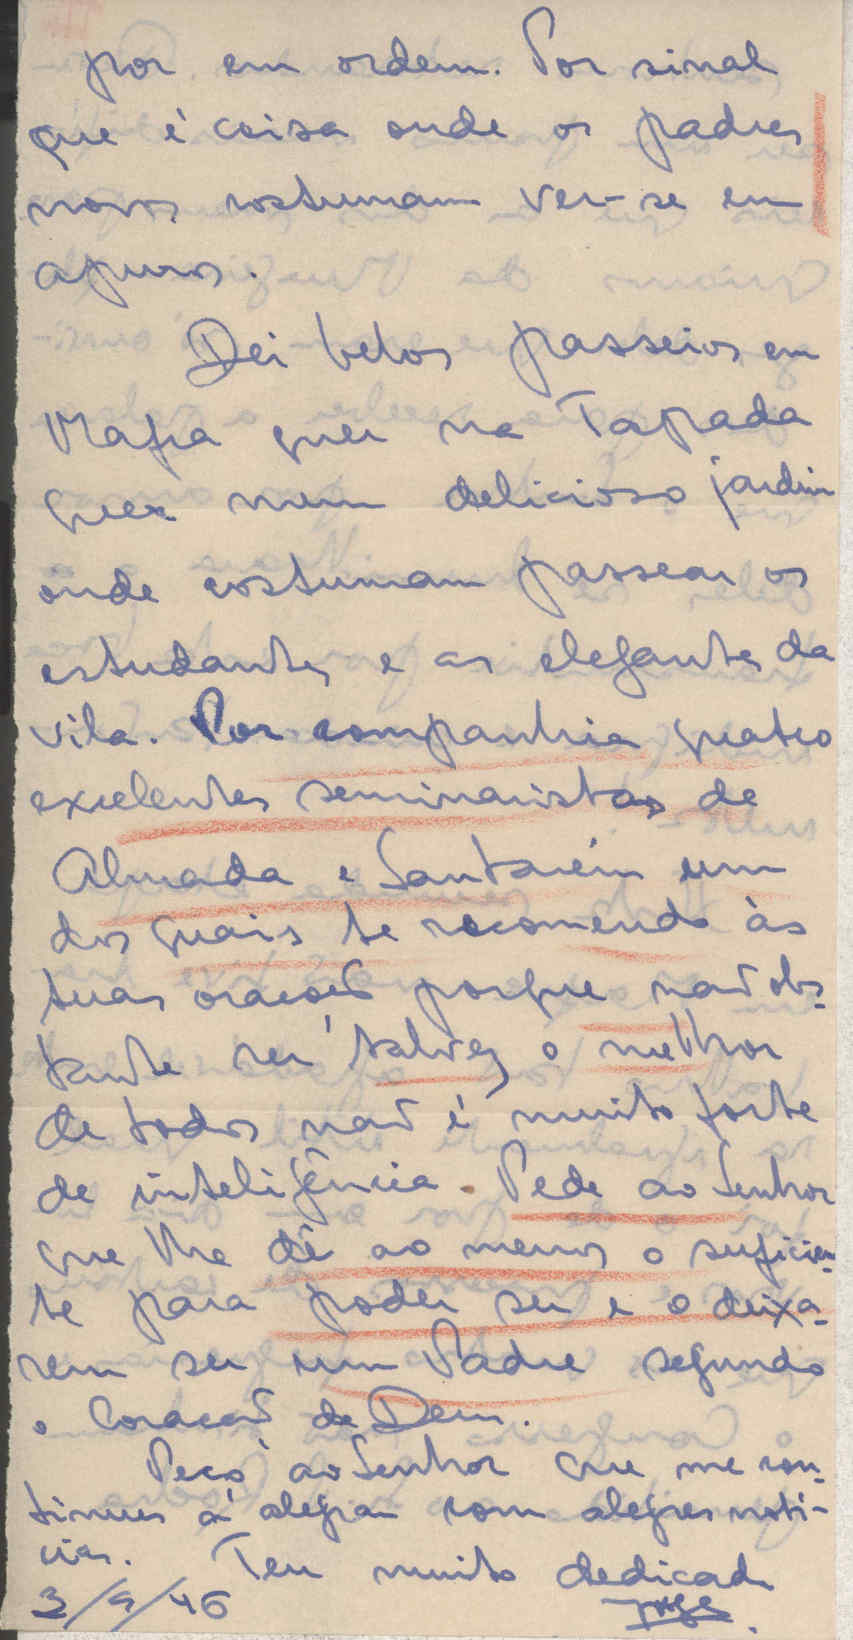 por em ordem. Por sinal
que é coisa onde os padres
novos costumam ver-se em
apuros.
Dei belos passeios em
Mafra quer na Tapada
quer num delicioso jardim
onde costumam passear os
estudantes e as elegantes da
vila. Por companhia quatro
excelentes seminaristas de
Almada e Santarém um
dos quais te recomendo às
tuas orações porque não obs-
tante ser talvez o melhor
de todos não é muito forte
de inteligência. Pede ao Senhor
que lhe dê ao menos o suficien-
te para poder ser e o deixa-
rem ser um Padre segundo
o Coração de Deus.
Peço ao Senhor que me con-
tinues a alegrar com alegres notí-
cias. Teu muito dedicado
3/9/46 Jorge